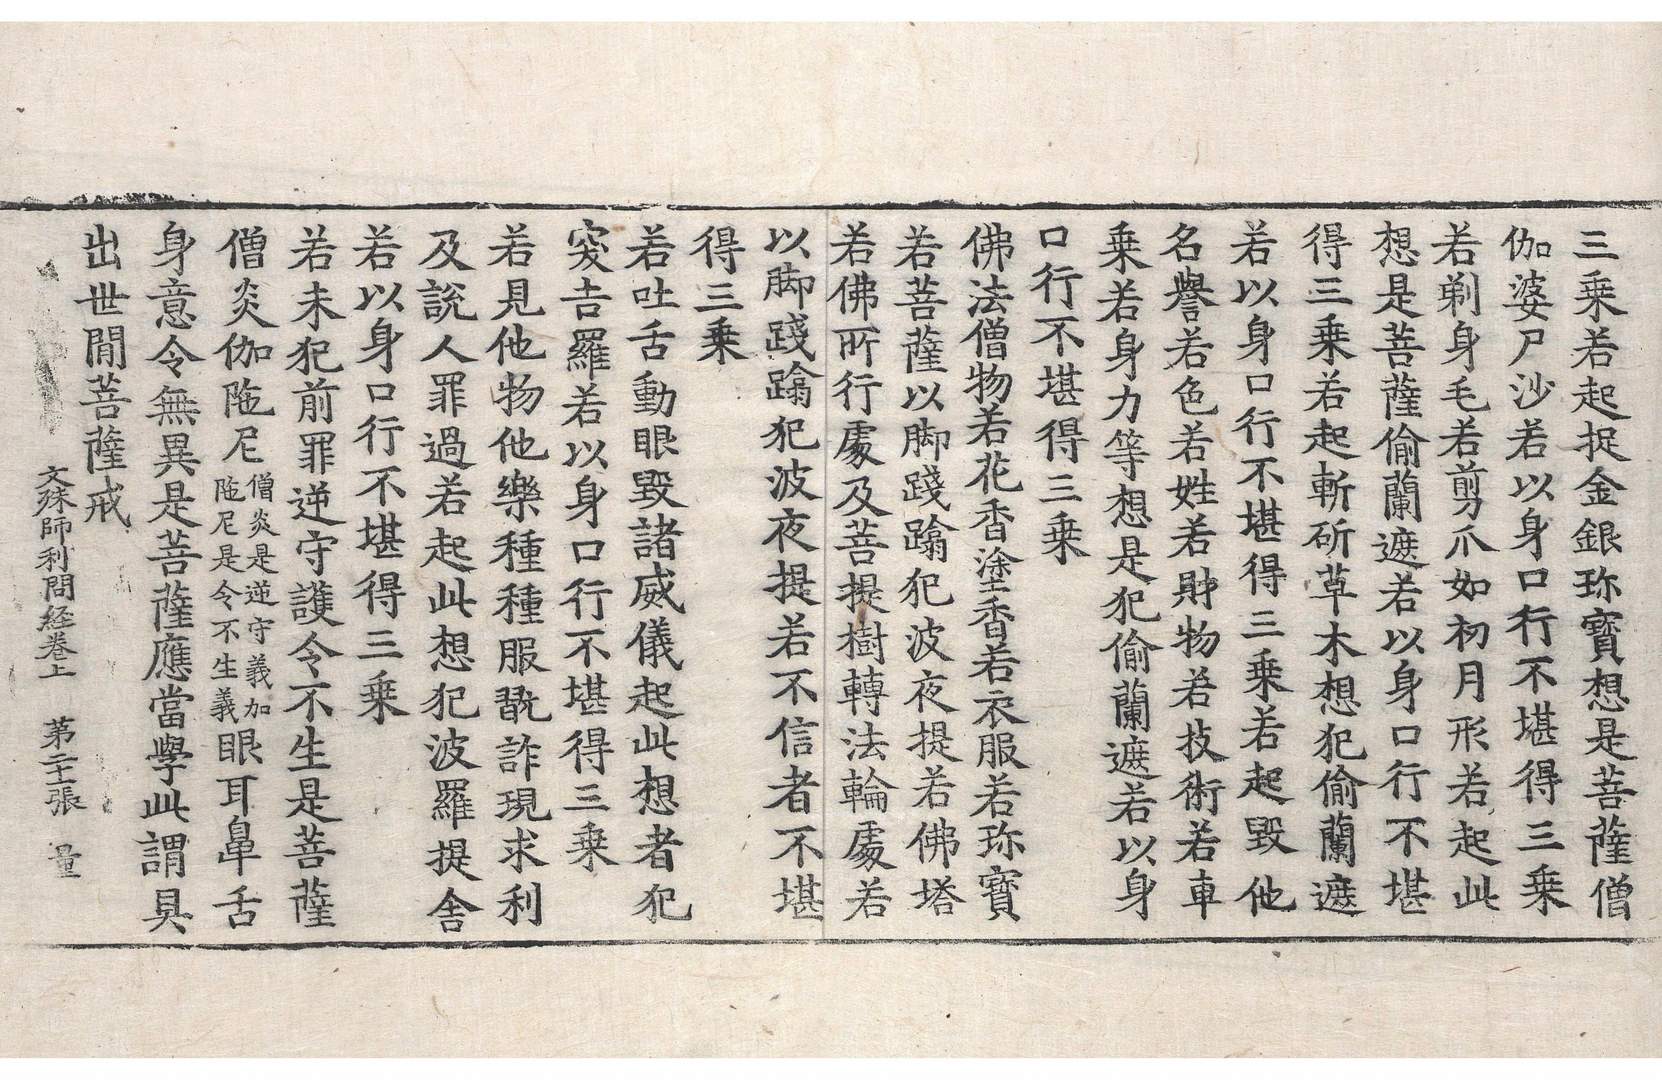 三乘若起捉金銀珎寶想是菩薩僧
伽婆尸沙若以身口行不堪得三乘
若剃身毛若剪爪如初月形若起此
想是菩薩偷蘭遮若以身口行不堪
得三乘若起斬斫草木想犯偷蘭遮
若以身口行不堪得三乘若起毀他
名譽若色若姓若財物若技術若車
乘若身力等想是犯偷蘭遮若以身
口行不堪得三乘
佛法僧物若花香塗香若衣服若珎寶
若菩薩以脚踐蹹犯波夜提若佛塔
若佛所行處及菩提樹轉法輪處若
以脚踐蹹犯波夜提若不信者不堪
得三乘
若吐舌動眼毀諸威儀起此想者犯
突吉羅若以身口行不堪得三乘
若見他物他樂種種服翫詐現求利
及說人罪過若起此想犯波羅提舍
若以身口行不堪得三乘
若未犯前罪逆守護令不生是菩薩
僧炎伽陁尼僧炎是逆守義加陁尼是令不生義眼耳鼻舌
身意令無異是菩薩應當學此謂具
出世間菩薩戒
文殊師利問経卷上 第二十張 量